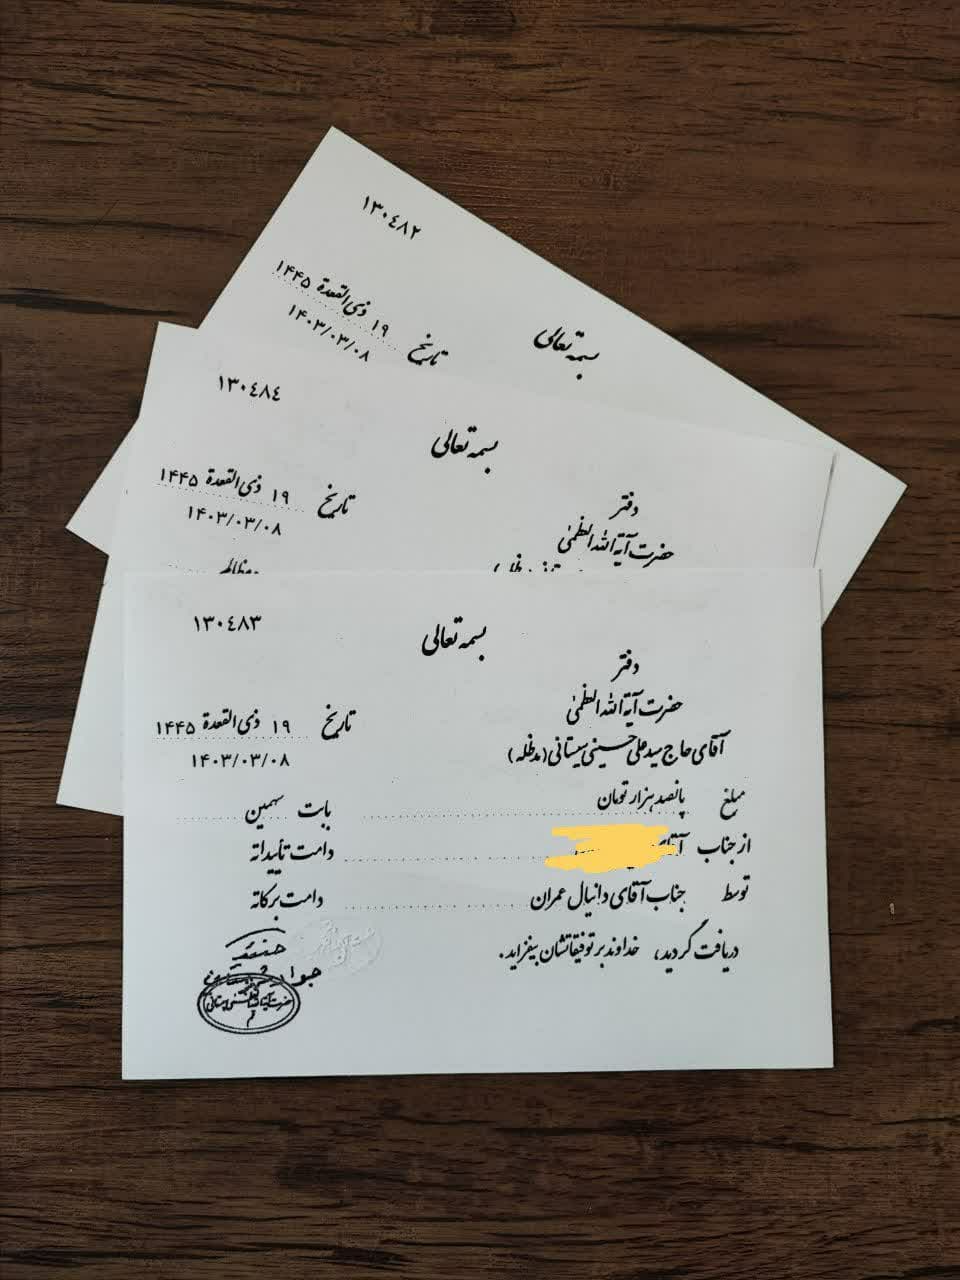 ۱۳۰٤۸۲
بسمه تعالی
تاریخ ۱۹ ذی القعدة ۱۴۴۵
۱۴۰۳/۰۳/۰۸
۱۳۰٤۸٤
بسمه تعالی
دفتر
حضرت آیة الله العظمیٰ
تاریخ ۱۹ ذی القعدة ۱۴۴۵
۱۴۰۳/۰۳/۰۸
۱۳۰٤۸۳
بسمه تعالی
دفتر
حضرت آیة الله العظمیٰ
آقای حاج سید علی حسینی سیستانی (مدظله)
تاریخ ۱۹ ذی القعدة ۱۴۴۵
۱۴۰۳/۰۳/۰۸
مبلغ پانصد هزار تومان بابت سهمین
از جناب آقای دامت تأییداته
توسط جناب آقای دانیال عمران دامت برکاته
دریافت گردید، خداوند بر توفیقاتشان بیفزاید.